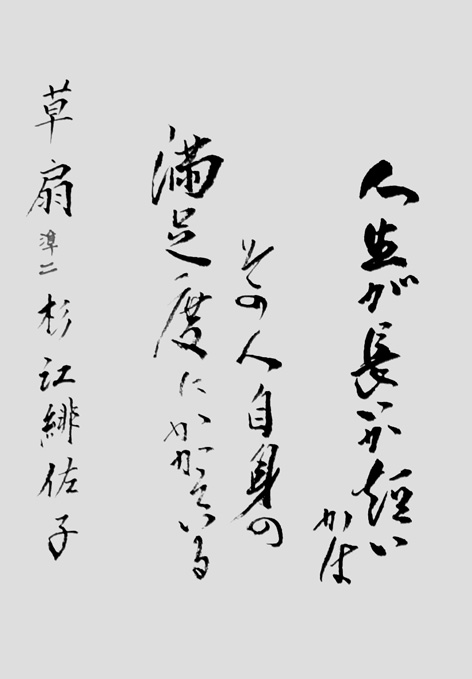 人生が長いか短い
かは
その人自身の
満足度にかかっている
草扇 準二 杉江緋佐子